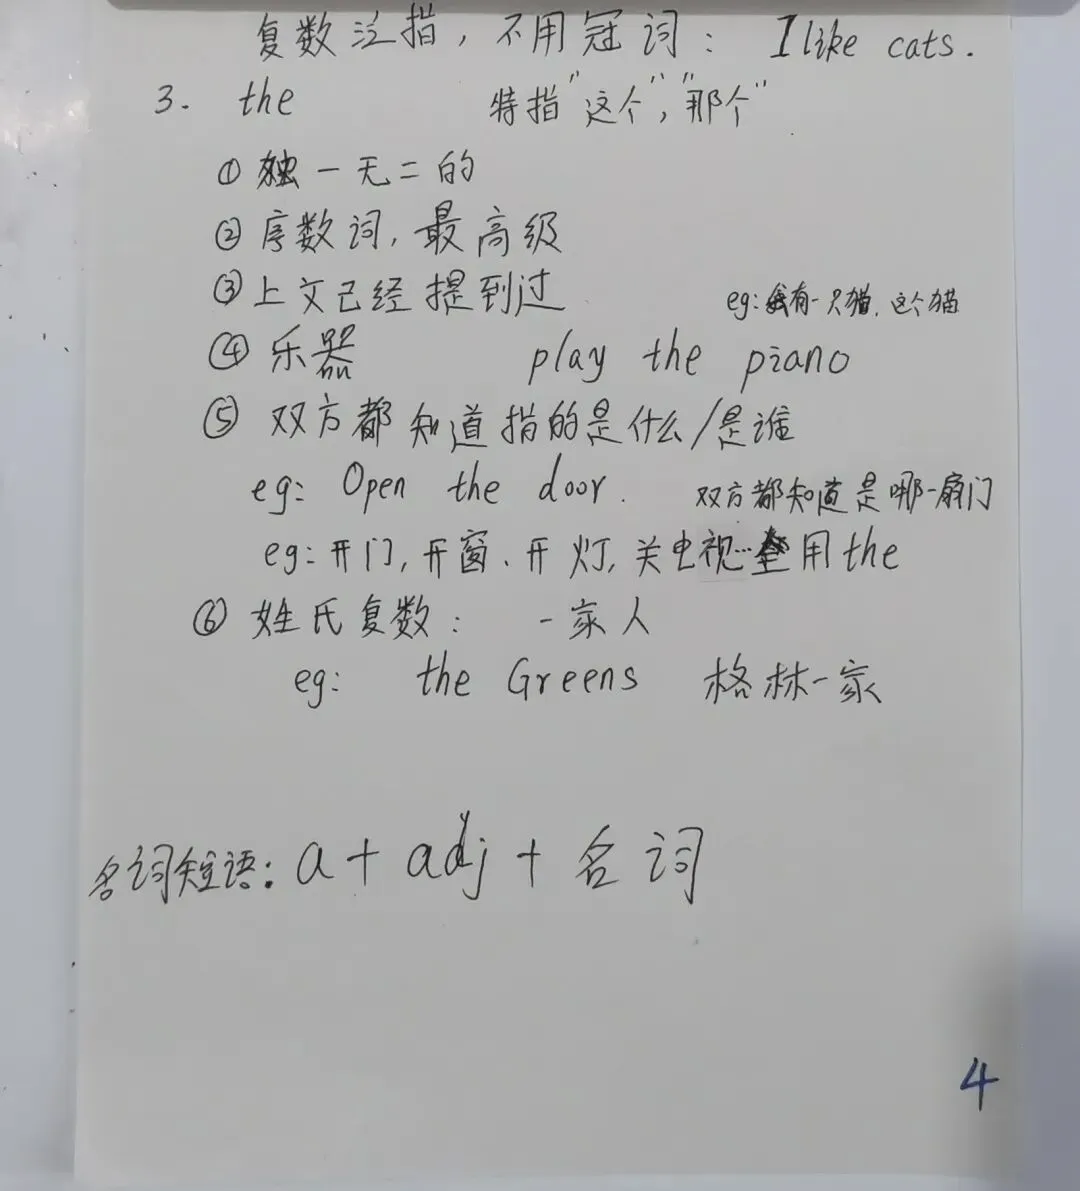 复数泛指，不用冠词： I like cats.
3. the 特指"这个"，"那个"
① 独一无二的
② 序数词，最高级
③ 上文已经提到过 eg: 我有一只猫，这个猫
④ 乐器 play the piano
⑤ 双方都知道指的是什么/是谁
eg: Open the door. 双方都知道是哪一扇门
eg: 开门，开窗、开灯，关电视…用the
⑥ 姓氏复数： 一家人
eg: the Greens 格林一家
名词短语：a + adj + 名词
4